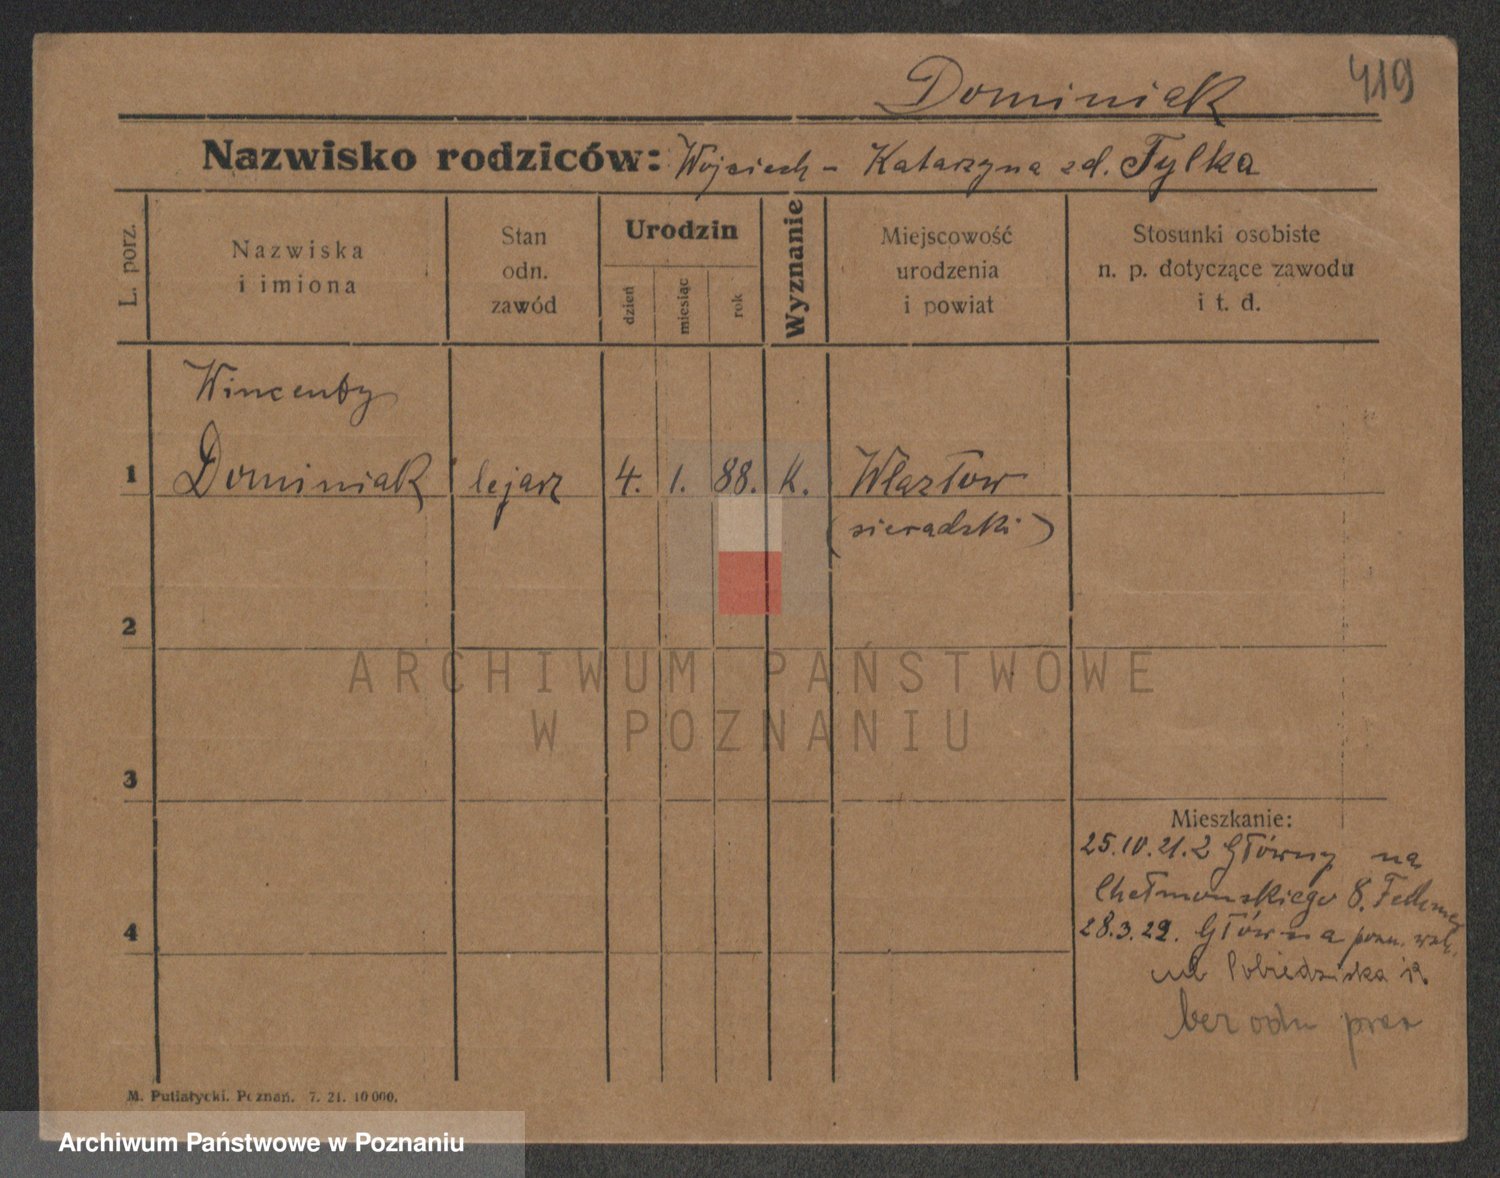 Dominiak
419
Nazwisko rodziców: Wojciech - Katarzyna zd. Tylka
L. porz.
Nazwiska
i imiona
Stan
odn.
zawód
Urodzin
dzień
miesiąc
rok
Wyznanie
Miejscowość
urodzenia
i powiat
Stosunki osobiste
n. p. dotyczące zawodu
i t. d.
Wincenty
1 Dominiak lejarz 4. 1. 88. K. Wlazłow
(sieradzki)
2
ARCHIWUM PAŃSTWOWE
W POZNANIU
3
Mieszkanie:
25.10.21. z Główny na
Chełmońskiego 8.
4
28.3.22. Główna pozn.
Pobiedziska
bez
M. Putiatycki. Poznań. 7. 21. 10 000.
Archiwum Państwowe w Poznaniu